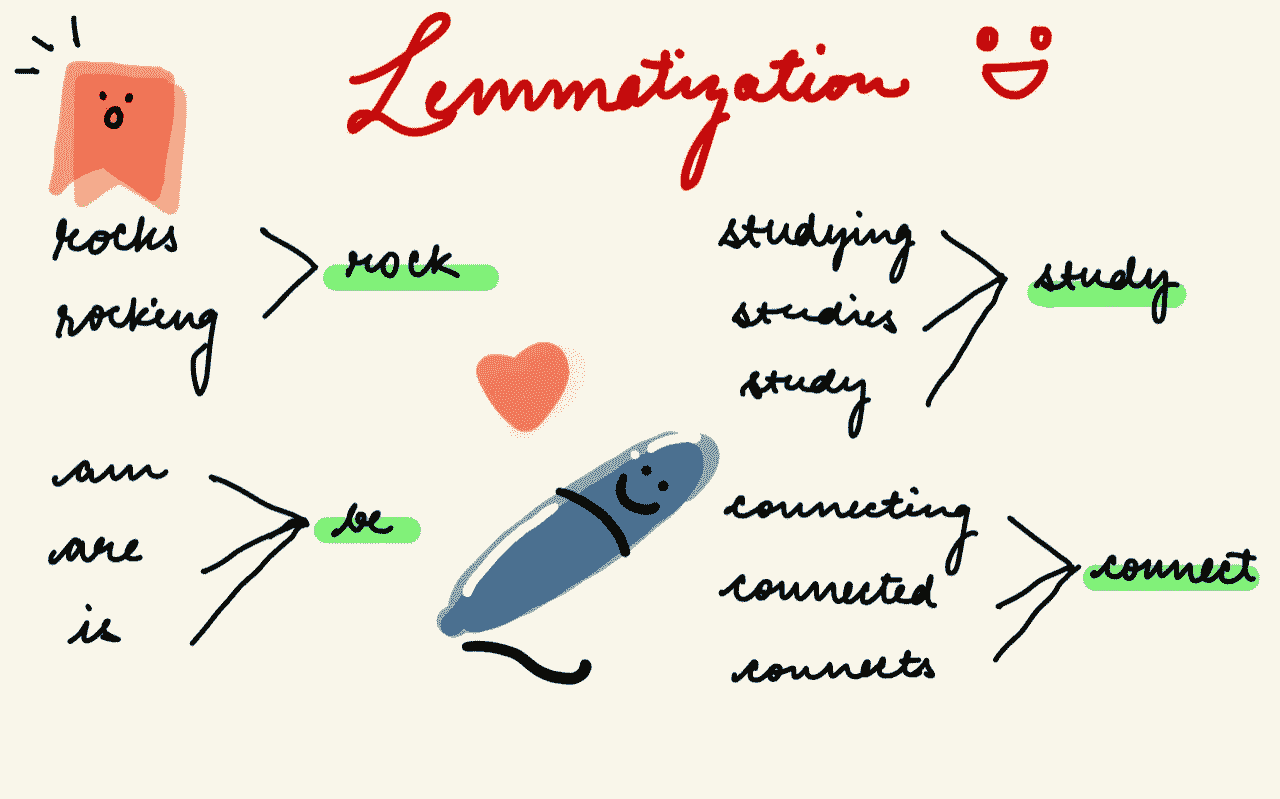 Lemmatization
rocks
rocking
rock
am
are
is
be
studying
studies
study
study
connecting
connected
connects
connect